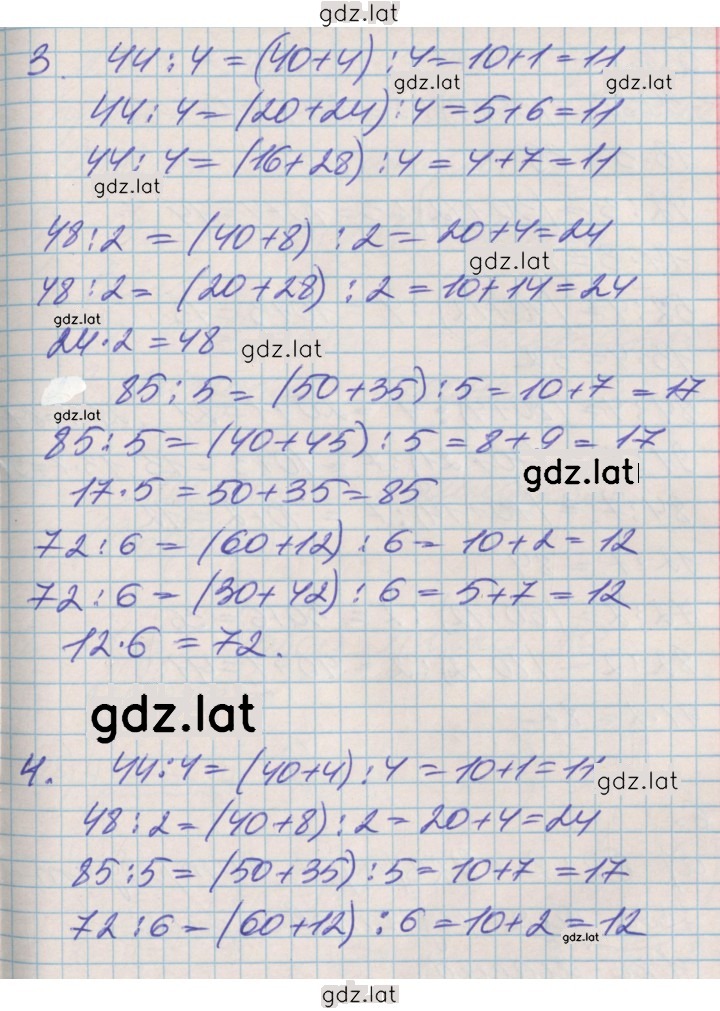 gdz.lat
3. 44 : 4 = (40+4) : 4 = 10+1 = 11
gdz.lat gdz.lat
44 : 4 = (20+24) : 4 = 5+6 = 11
44 : 4 = (16+28) : 4 = 4+7 = 11
gdz.lat
48 : 2 = (40+8) : 2 = 20+4 = 24
gdz.lat
48 : 2 = (20+28) : 2 = 10+14 = 24
gdz.lat
24 · 2 = 48
gdz.lat
85 : 5 = (50+35) : 5 = 10+7 = 17
gdz.lat
85 : 5 = (40+45) : 5 = 8+9 = 17
gdz.lat
17 · 5 = 50+35 = 85
72 : 6 = (60+12) : 6 = 10+2 = 12
72 : 6 = (30+42) : 6 = 5+7 = 12
12 · 6 = 72.
gdz.lat
4. 44 : 4 = (40+4) : 4 = 10+1 = 11
gdz.lat
48 : 2 = (40+8) : 2 = 20+4 = 24
85 : 5 = (50+35) : 5 = 10+7 = 17
72 : 6 = (60+12) : 6 = 10+2 = 12
gdz.lat
gdz.lat